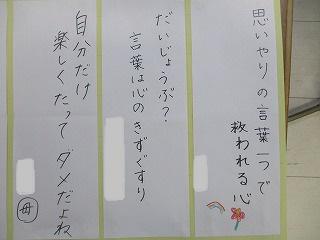 思いやりの言葉一つで
救われる心
だいじょうぶ?
言葉は心のきずぐすり
自分だけ
楽しくたって ダメだよね
母